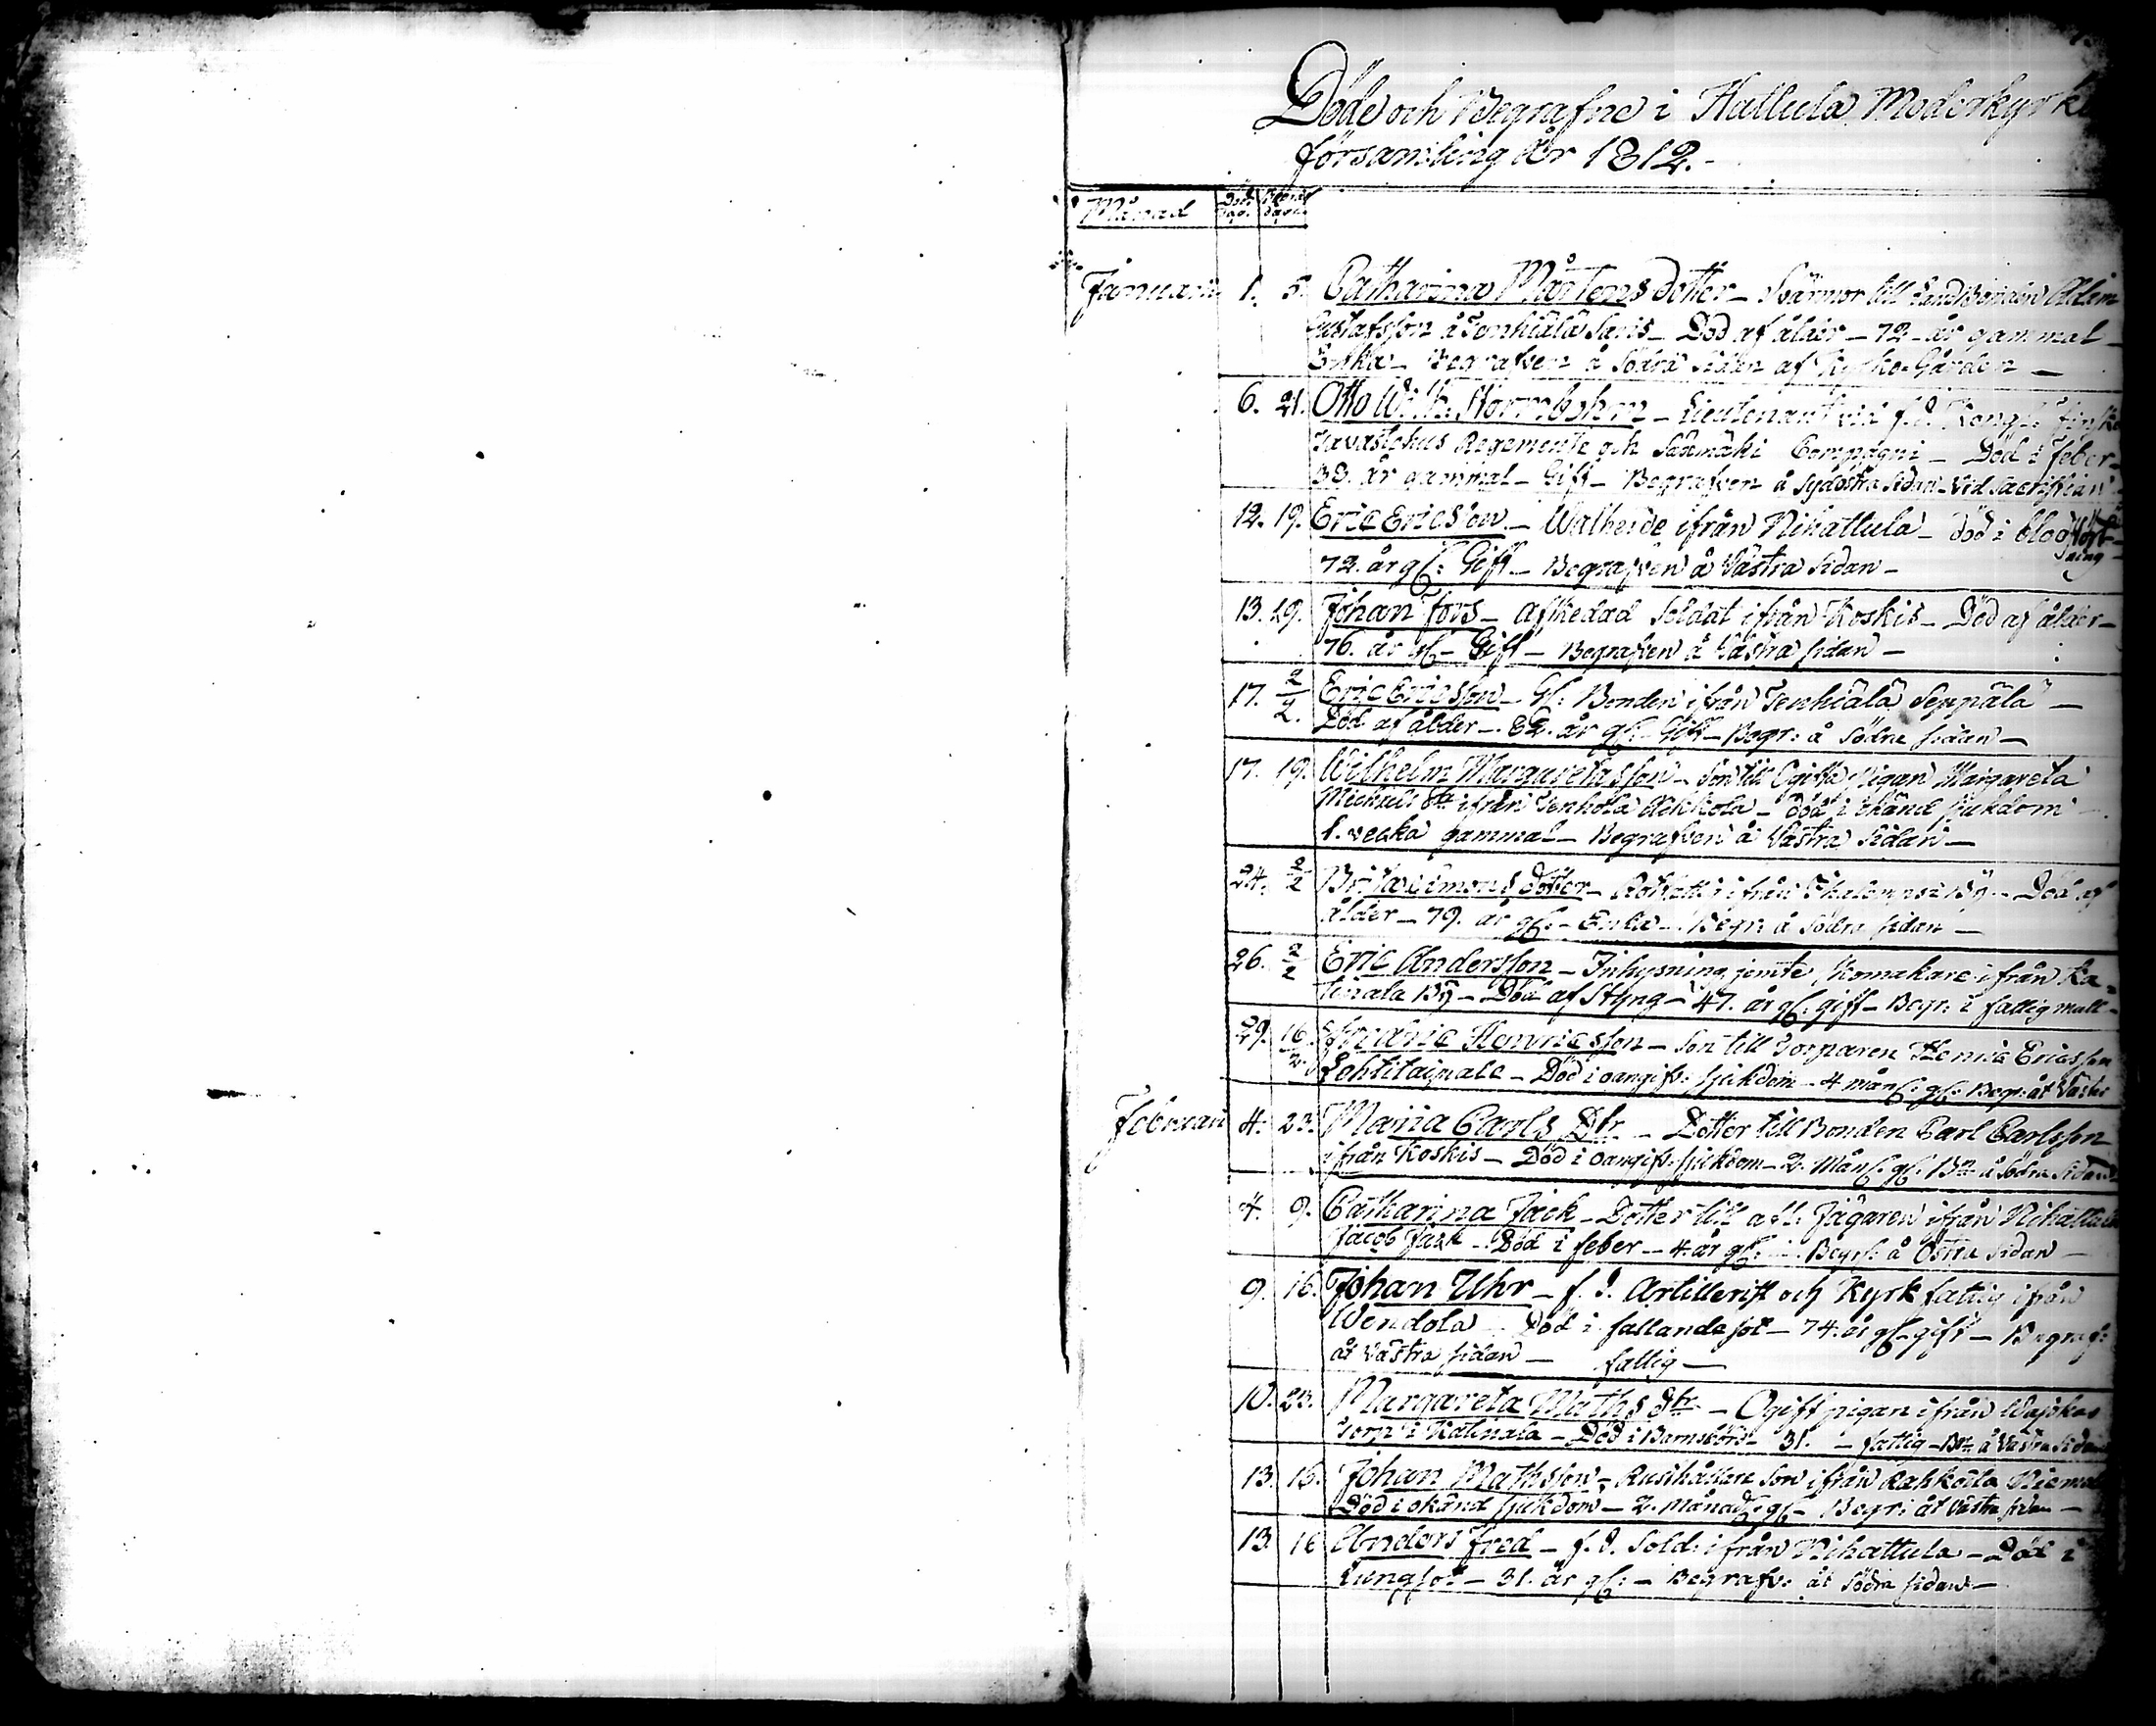 Döde och Begrafne i Hattula Moderkyrko
församling år 1812.-
Månad Död dag. Begraf: dagen
Januarii 1. 5. Catharina Mårtens dotter - Svärmor till Landbonden Adam
Gustafsson å Tenhiälä Saris - Död af ålder - 72 år gammal -
Enka - Begrafven å Södra Sidan af Kyrko-Gården -
6. 21. Otto Wilh: Stormbohm - Lieutenant vid f.d. Kongl: finska
Tavastehus Regemente och Sääxmäki Compagni - Död i feber -
33. år gammal - Gift - Begrafven å Sydöstra Sidan vid Sacristian
12. 19. Eric Ericsson - ifrån Nihattula - död i blodstört-
ning -
72. år gl: Gift - Begrafven å Västra Sidan -
13. 19. Johan Fors - afskedad Soldat ifrån Koskis - Död af ålder -
76. år gl - Gift - Begrafven å Västra sidan -
17. 2/2. Eric Ericsson - Gl: Bonden ifrån Tenhiälä Seppälä -
Död af ålder - 62. år gl - Gift - Begr: å Södre sidan -
17. 19. Wilhelm Margaretasson - Son till Ogifta Pigan Margareta
Michels dtr ifrån Tenhola - död i okänd sjukdom -
1. vecka gammal - Begrafven å Västra Sidan -
24. 2/2 Brita Simons dotter - ifrån By - Död af
ålder - 79. år gl: - Enka - Begr: å Södra sidan -
26. 2/2 Eric Andersson - Inhysning jemte Skomakare ifrån Ka-
tinala By - Död af Styng - 47. år gl: gift - Begr: i fattig mull -
29. 16/2. Fredric Henricsson - Son till Torparen Henric Ericsson
- Död i oangifv: sjukdom - 4 mån: gl: Begr: åt Västra
Februarii 4. 23. Maria Carls Dtr - Dotter till Bonden Carl Carlsson
ifrån Koskis - Död i oangifv: sjukdom - 2. Mån: gl: Br: å Södra Sidan
4. 9. Catharina Jack - Dotter till afl: Jägaren ifrån Nihattula
Jacob Jack - Död i feber - 4 år gl: - Begr: å Östra sidan -
9. 16. Johan Uhr - f. d. Artillerist och Kyrkfattig ifrån
Wendola - Död i fallandesot - 74. år gl gift - Begraf:
åt Västra sidan - fattig -
10. 23. Margareta Maths dtr - Ogift pigan ifrån
Torp i Katinala - Död i Barnsbörd - 31. - fattig - Br: å Västra Sidan
13. 16. Johan Mathsson - Rusthållare Son ifrån Rahkoila
Död i okänd sjukdom - 2. månad: gl - Begr: åt Västra sidan -
13. 16 Anders Fred - f. d. Sold: ifrån Nihattula - Död i
Lungsot - 31. år gl: - Begrafv: åt Södra sidan -